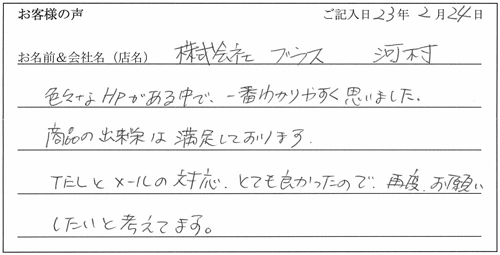 お客様の声 ご記入日23年2月24日
お名前&会社名(店名) 株式会社 プラス 河村
色々なHPがある中で、一番わかりやすく思いました。
商品の出来栄は満足しております。
TELとメールの対応、とても良かったので、再度、お願い
したいと考えてます。